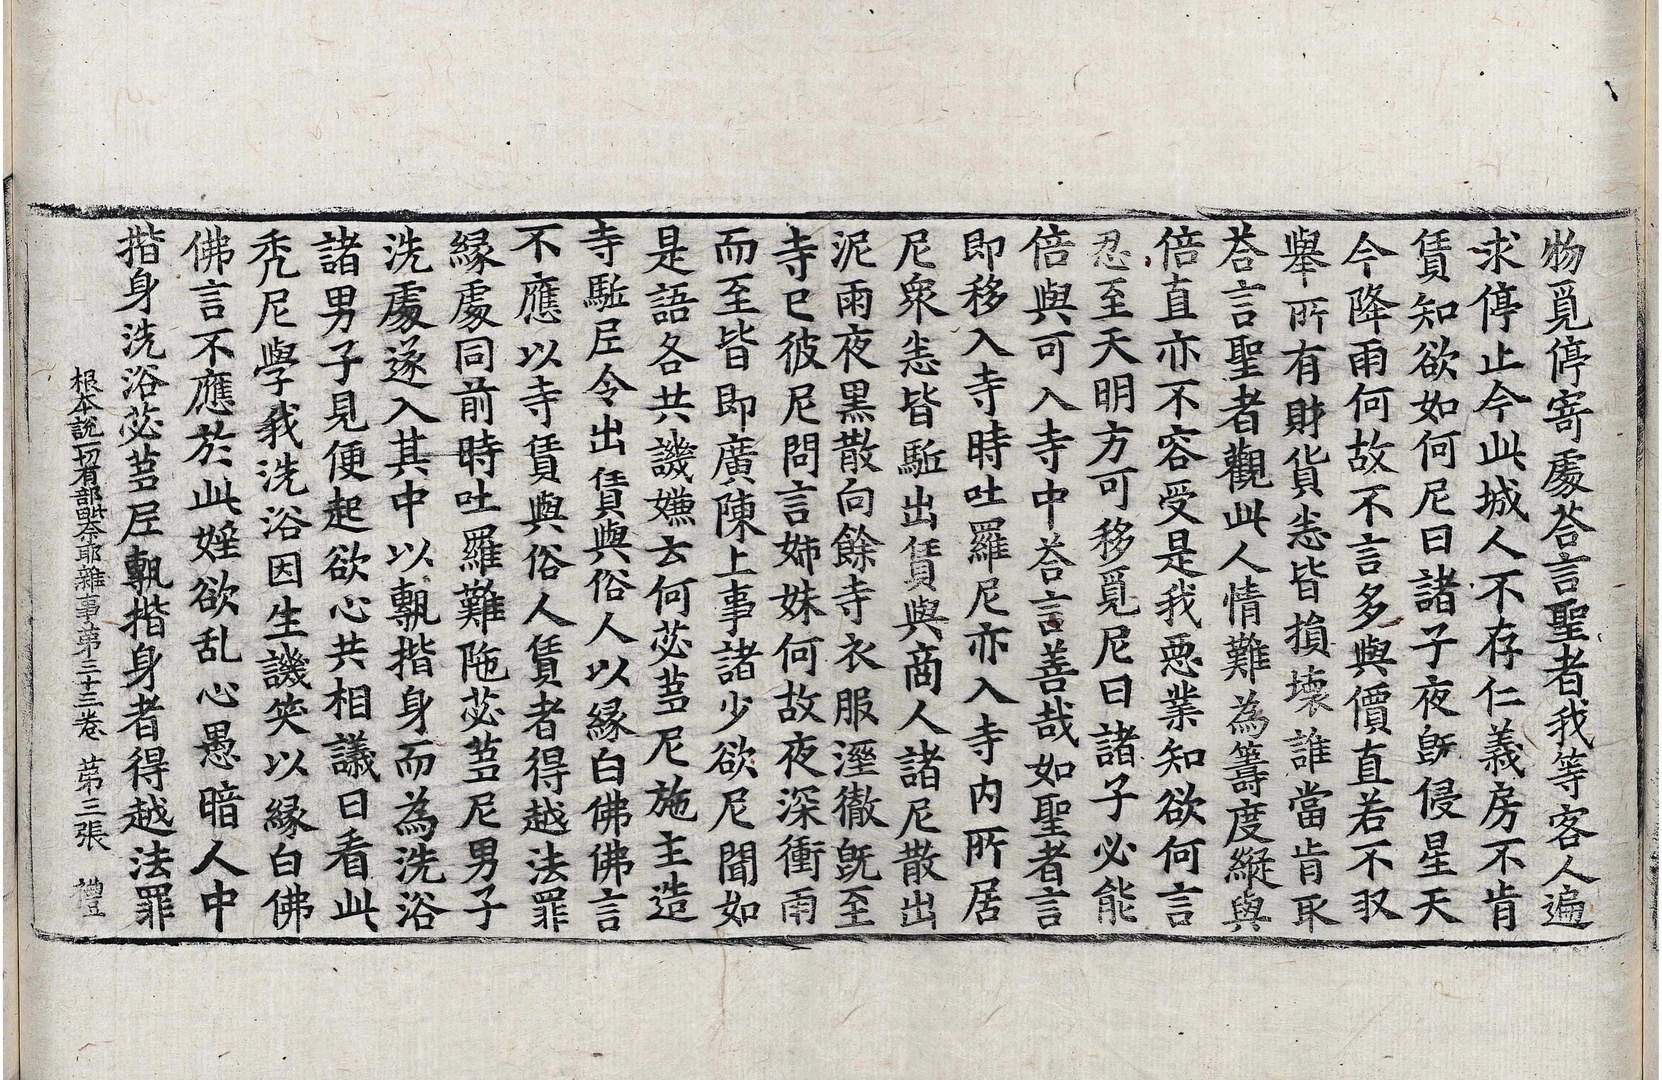 物覓停寄處荅言聖者我等客人遍
求停止今此城人不存仁義房不肯
賃知欲如何尼曰諸子夜旣侵星天
今降雨何故不言多與價直若不収
舉所有財貨恙皆損壊誰當肯取
荅言聖者觀此人情難為籌度縱與
倍直亦不容受是我惡業知欲何言
忍至天明方可移覓尼曰諸子必能
倍與可入寺中荅言善哉如聖者言
即移入寺時吐羅尼亦入寺内所居
尼衆恙皆駈出賃與商人諸尼散出
泥雨夜黒散向餘寺衣服溼徹旣至
寺已彼尼問言姊妹何故夜深衝雨
而至皆即廣陳上事諸少欲尼聞如
是語各共譏嫌云何苾蒭尼施主造
寺駈尼令出賃與俗人以縁白佛佛言
不應以寺賃與俗人賃者得越法罪
縁處同前時吐羅難陁苾蒭尼男子
洗處遂入其中以甎揩身而為洗浴
諸男子見便起欲心共相議曰看此
禿尼學我洗浴因生譏笑以縁白佛
佛言不應於此婬欲乱心愚暗人中
揩身洗浴苾蒭尼甎揩身者得越法罪
根本說一切有部毗奈耶雜事苐三十三卷 苐三張 禮